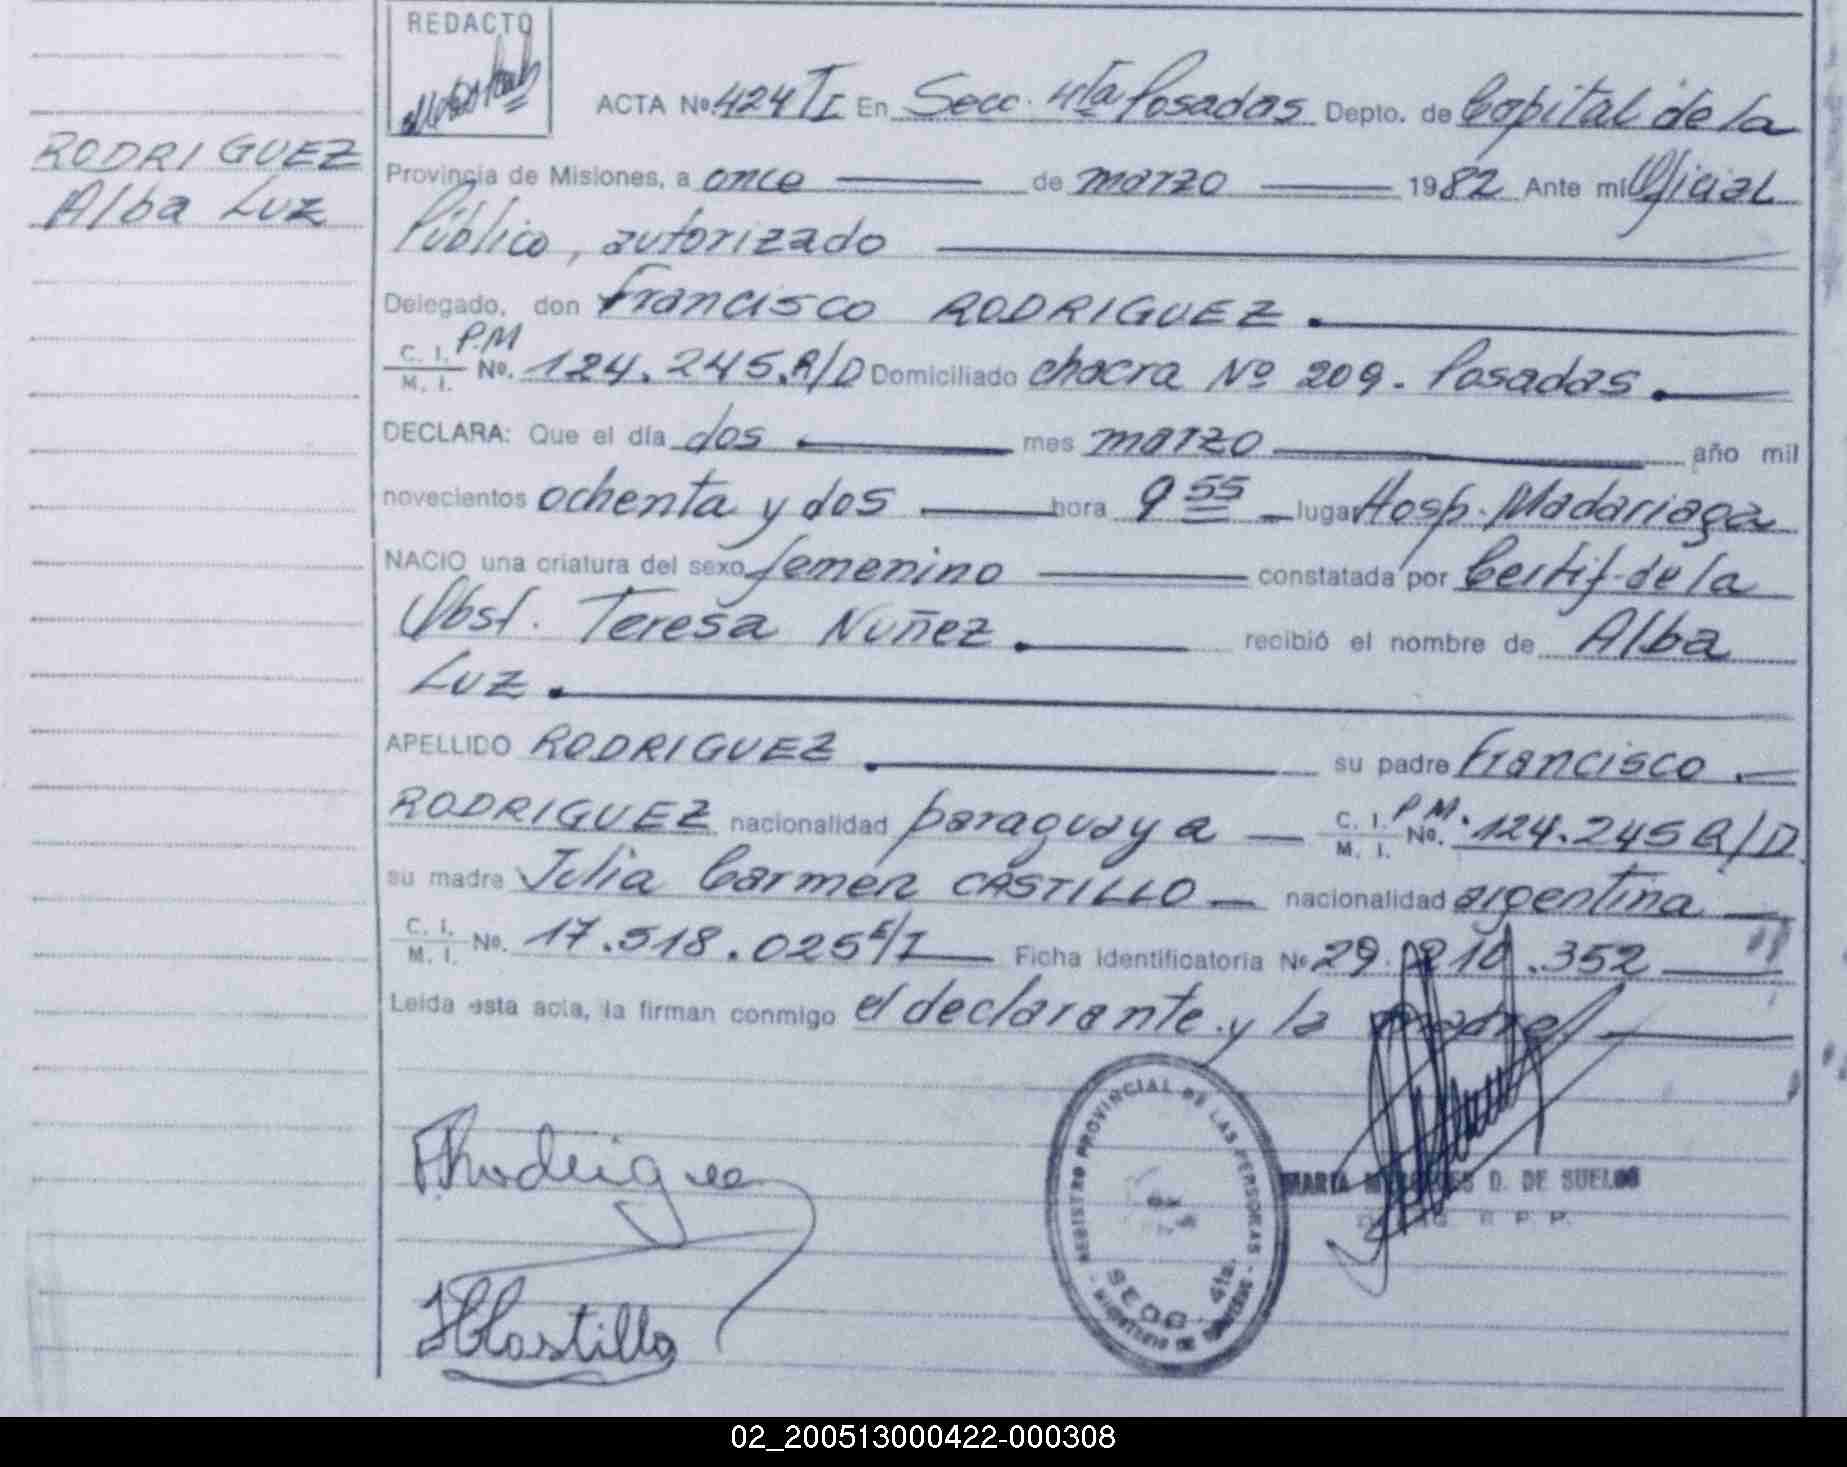 REDACTO
RODRIGUEZ
Alba Luz
ACTA Nº 424 TI En Secc. 4ta Posadas Depto. de Capital de la
Provincia de Misiones, a once de marzo 1982 Ante mi Oficial
Público, autorizado
Delegado, don Francisco RODRIGUEZ.
C. I. M. I. P.M Nº. 124.245.R/D Domiciliado chacra Nº 209. Posadas.
DECLARA: Que el día dos mes marzo año mil
novecientos ochenta y dos hora 9 55 lugar Hosp. Madariaga
NACIO una criatura del sexo femenino constatada por Certif. de la
Obst. Teresa Nuñez. recibió el nombre de Alba
Luz.
APELLIDO RODRIGUEZ su padre Francisco
RODRIGUEZ nacionalidad paraguaya C. I. M. I. P.M. Nº. 124.245 R/D
su madre Julia Carmen CASTILLO nacionalidad argentina
C. I. M. I. Nº. 17.518.025 E/I Ficha identificatoria Nº 29.210.352
Leída esta acta, la firman conmigo el declarante y la madre
F. Rodriguez
JCCastillo
REGISTRO PROVINCIAL DE LAS PERSONAS
SECC. 4ta.
MINISTERIO DE GOBIERNO
MARIA D. DE SUELOS
R. P. P.
02_200513000422-000308